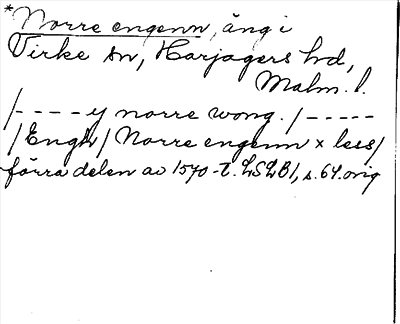 *Norre engenn, äng i
Virke sn, Harjagers hd,
Malm. l.
/ - - - - y norre wong. / - - - - -
/ Engh / Norre engenn x less /
förra delen av 1570-t. LSLB 1, s. 64. orig